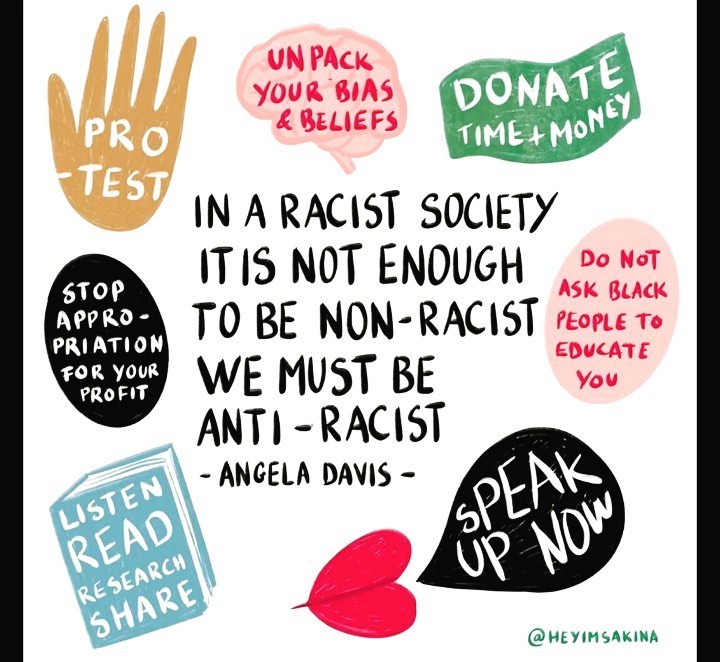 PRO
-TEST
UNPACK
YOUR BIAS
& BELIEFS
DONATE
TIME + MONEY
IN A RACIST SOCIETY
IT IS NOT ENOUGH
TO BE NON-RACIST
WE MUST BE
ANTI-RACIST
- ANGELA DAVIS -
STOP
APPRO-
PRIATION
FOR YOUR
PROFIT
DO NOT
ASK BLACK
PEOPLE TO
EDUCATE
YOU
LISTEN
READ
RESEARCH
SHARE
SPEAK
UP NOW
@HEYIMSAKINA